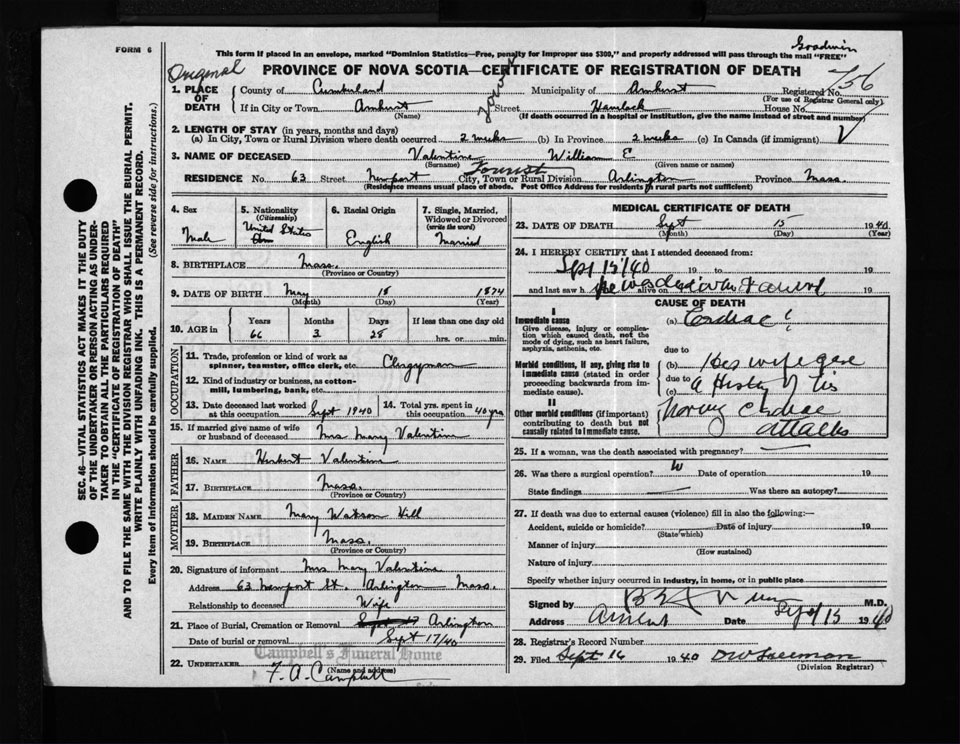 FORM 6
Goodwin
This form if placed in an envelope, marked "Dominion Statistics—Free, penalty for improper use $300," and properly addressed will pass through the mail "FREE"
Original
PROVINCE OF NOVA SCOTIA—CERTIFICATE OF REGISTRATION OF DEATH
756
1. PLACE OF DEATH
County of Cumberland Municipality of Amherst Registered No.
(For use of Registrar General only)
If in City or Town Amherst Street Havelock House No.
(Name) (If death occurred in a hospital or institution, give the name instead of street and number)
2. LENGTH OF STAY (in years, months and days)
(a) In City, Town or Rural Division where death occurred 2 weeks (b) In Province 2 weeks (c) In Canada (if immigrant)
3. NAME OF DECEASED Valentine William E
(Surname) (Given name or names)
Tourist
RESIDENCE No. 63 Street Newport City, Town or Rural Division Arlington Province Mass.
(Residence means usual place of abode. Post Office Address for residents in rural parts not sufficient)
4. Sex
Male
5. Nationality (Citizenship)
United States
6. Racial Origin
English
7. Single, Married, Widowed or Divorced (write the word)
Married
8. BIRTHPLACE Mass.
(Province or Country)
9. DATE OF BIRTH May 18 1874
(Month) (Day) (Year)
10. AGE in
Years Months Days If less than one day old
66 3 28 hrs. or min.
OCCUPATION
11. Trade, profession or kind of work as spinner, teamster, office clerk, etc. Clergyman
12. Kind of industry or business, as cotton-mill, lumbering, bank, etc.
13. Date deceased last worked at this occupation Sept 1940
14. Total yrs. spent in this occupation 40 yrs
15. If married give name of wife or husband of deceased Mrs Mary Valentine
FATHER
16. NAME Herbert Valentine
17. BIRTHPLACE Mass.
(Province or Country)
MOTHER
18. MAIDEN NAME Mary Watson Hill
19. BIRTHPLACE Mass.
(Province or Country)
20. Signature of informant Mrs Mary Valentine
Address 63 Newport St. Arlington Mass.
Relationship to deceased Wife
21. Place of Burial, Cremation or Removal Arlington
Date of burial or removal Sept 17/40
Campbell's Funeral Home
22. UNDERTAKER F. A. Campbell
(Name and address)
MEDICAL CERTIFICATE OF DEATH
23. DATE OF DEATH Sept 15 1940
(Month) (Day) (Year)
24. I HEREBY CERTIFY that I attended deceased from:
Sept 15/40 19 to 19
and last saw h alive on 19
he was dead when I arrived
CAUSE OF DEATH
I
Immediate cause
Give disease, injury or complication which caused death, not the mode of dying, such as heart failure, asphyxia, asthenia, etc.
(a) Cordiac?
due to
Morbid conditions, if any, giving rise to immediate cause (stated in order proceeding backwards from immediate cause).
(b) His wife gave
due to
(c) a History of his
II
Other morbid conditions (if important) contributing to death but not causally related to immediate cause.
having Cordiac
attacks
25. If a woman, was the death associated with pregnancy?
26. Was there a surgical operation? Date of operation 19
State findings Was there an autopsy?
27. If death was due to external causes (violence) fill in also the following:—
Accident, suicide or homicide? Date of injury 19
(State which)
Manner of injury
(How sustained)
Nature of injury
Specify whether injury occurred in industry, in home, or in public place
Signed by M.D.
Address Amherst Date Sept 15 1940
28. Registrar's Record Number
29. Filed Sept 16 1940
(Division Registrar)
SEC. 46—VITAL STATISTICS ACT MAKES IT THE DUTY
OF THE UNDERTAKER OR PERSON ACTING AS UNDER-
TAKER TO OBTAIN ALL THE PARTICULARS REQUIRED
IN THE "CERTIFICATE OF REGISTRATION OF DEATH"
AND TO FILE THE SAME WITH THE DIVISION REGISTRAR WHO SHALL ISSUE THE BURIAL PERMIT.
WRITE PLAINLY WITH UNFADING INK. THIS IS A PERMANENT RECORD.
Every item of information should be carefully supplied. (See reverse side for instructions.)